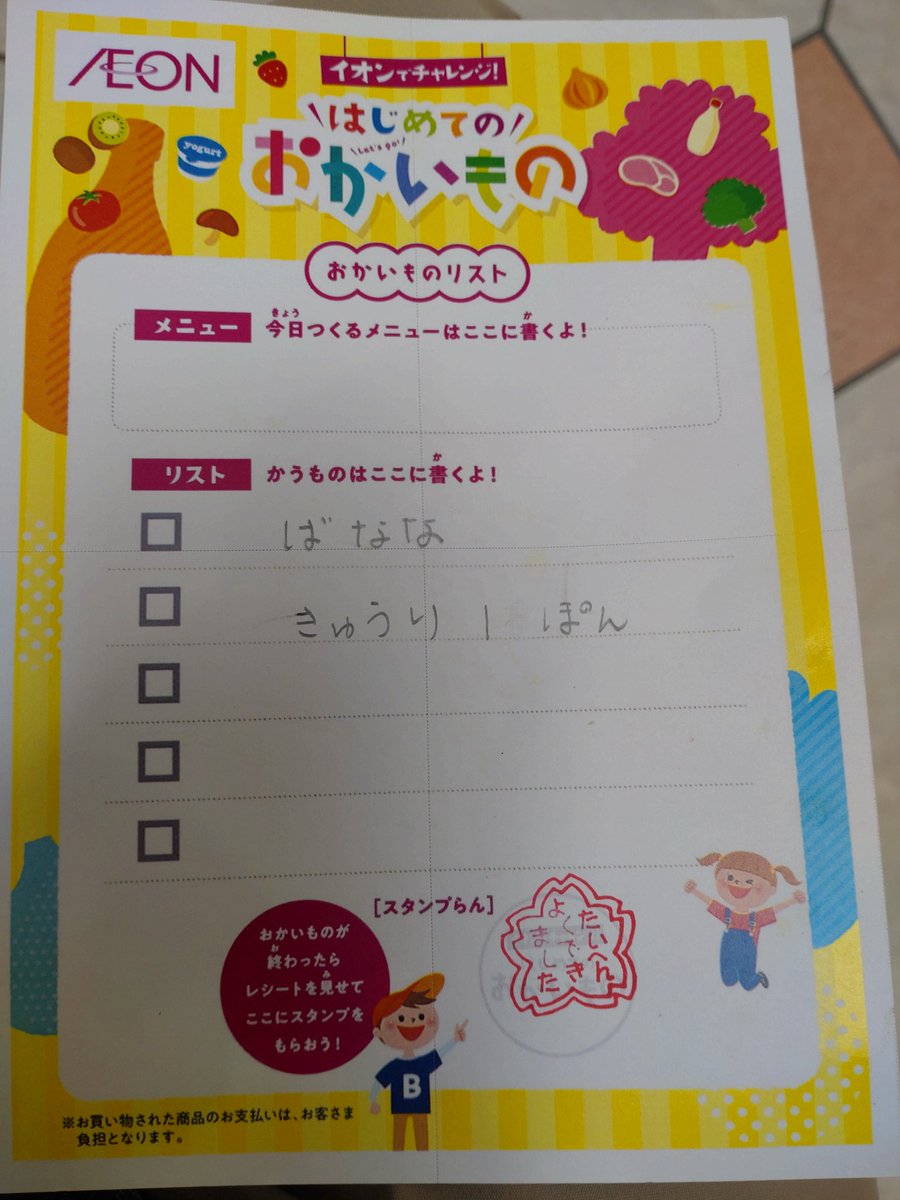 ÆON
イオンでチャレンジ!
はじめての
Let's go!
おかいもの
yogurt
おかいものリスト
メニュー 今日つくるメニューはここに書くよ!
リスト かうものはここに書くよ!
ばなな
きゅうり 1 ぽん
[スタンプらん]
おかいものが
終わったら
レシートを見せて
ここにスタンプを
もらおう!
たいへん
よくでき
ました
B
※お買い物された商品のお支払いは、お客さま
負担となります。